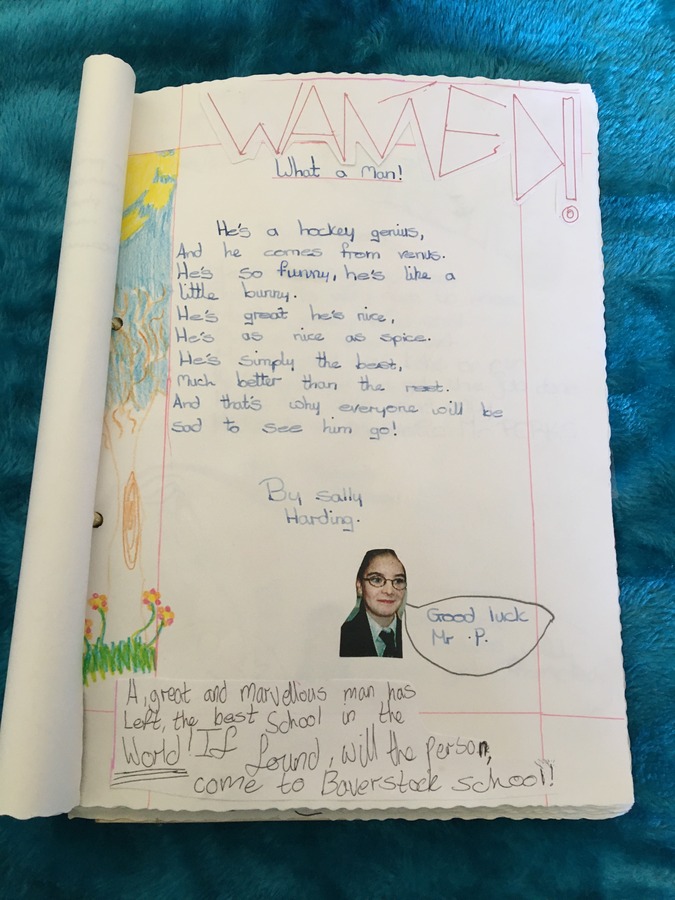 WAMED!
What a Man!
He's a hockey genius,
And he comes from venus.
He's so funny, he's like a
little bunny.
He's great he's nice,
He's as nice as spice.
He's simply the best,
Much better than the rest.
And that's why everyone will be
sad to see him go!
By Sally
Harding.
Good luck
Mr .P.
A, great and marvellious man has
Left, the best School in the
World! If found, will the person,
come to Baverstock school!